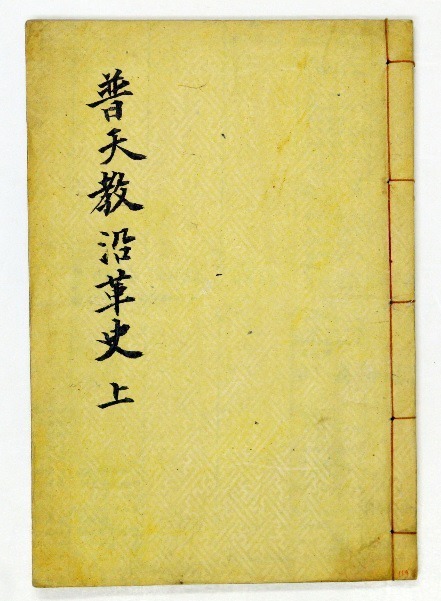 普天教沿革史 上